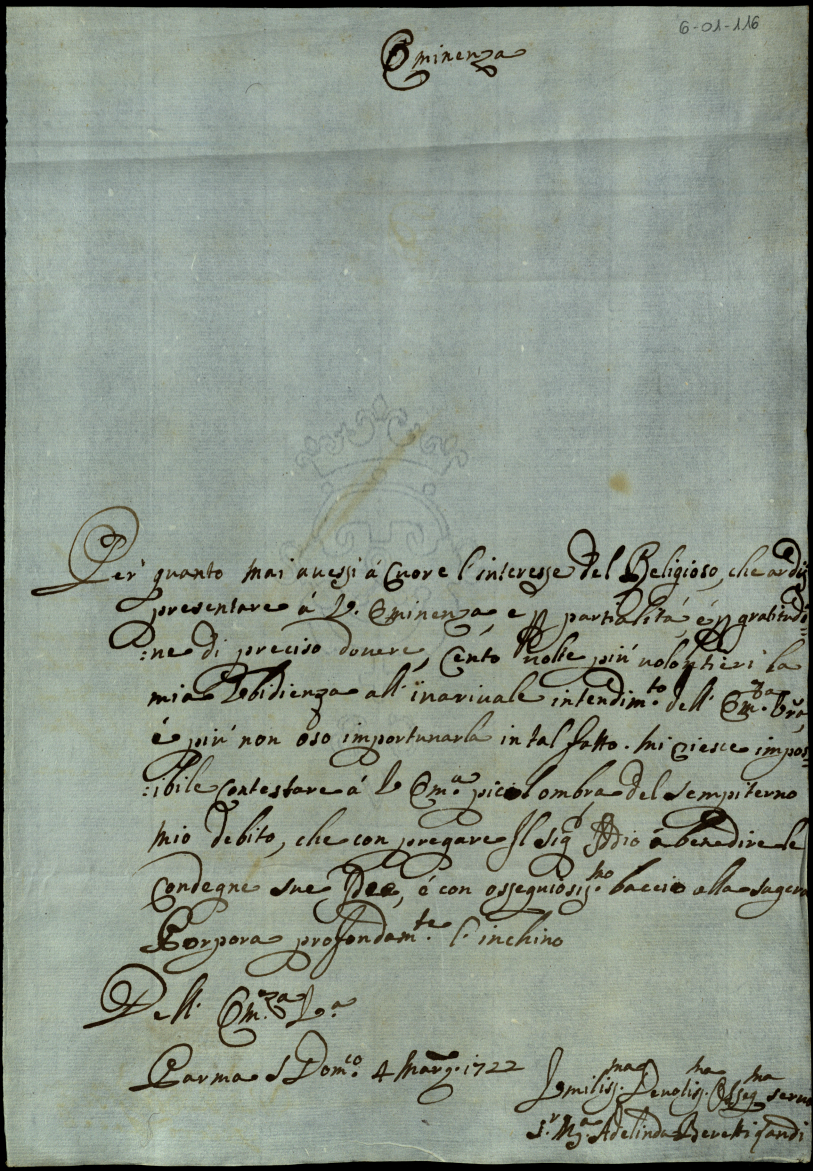 6-01-116
Eminenza
Per quanto mai avessi á Cuore l'interesse del Religioso, che ardij
presentare á V. Eminenza, e p partialita, é p gratitudi=
:ne di preciso douere, Cento uolte piú uolontieri la
mia Vbidienza all' intendim.to dell' Em.za Vra,
é piú non oso importunarla in tal fatto. Mi riesce impos=
:ibile Contestare á V Em.a picol ombra del sempiterno
mio debito, che con pregare Il Sig.r Iddio á benedire le
Condegne sue Idee, é con ossequiosiss.mo baccio alla sagra
Porpora profondam.te l'inchino
Dell' Em.za V.a
Parma S Dom.co 4 Marz. 1722
Vmiliss.ma Deuotiss.ma Osseq.ma serua
S.r M.a Adelinda Beretti